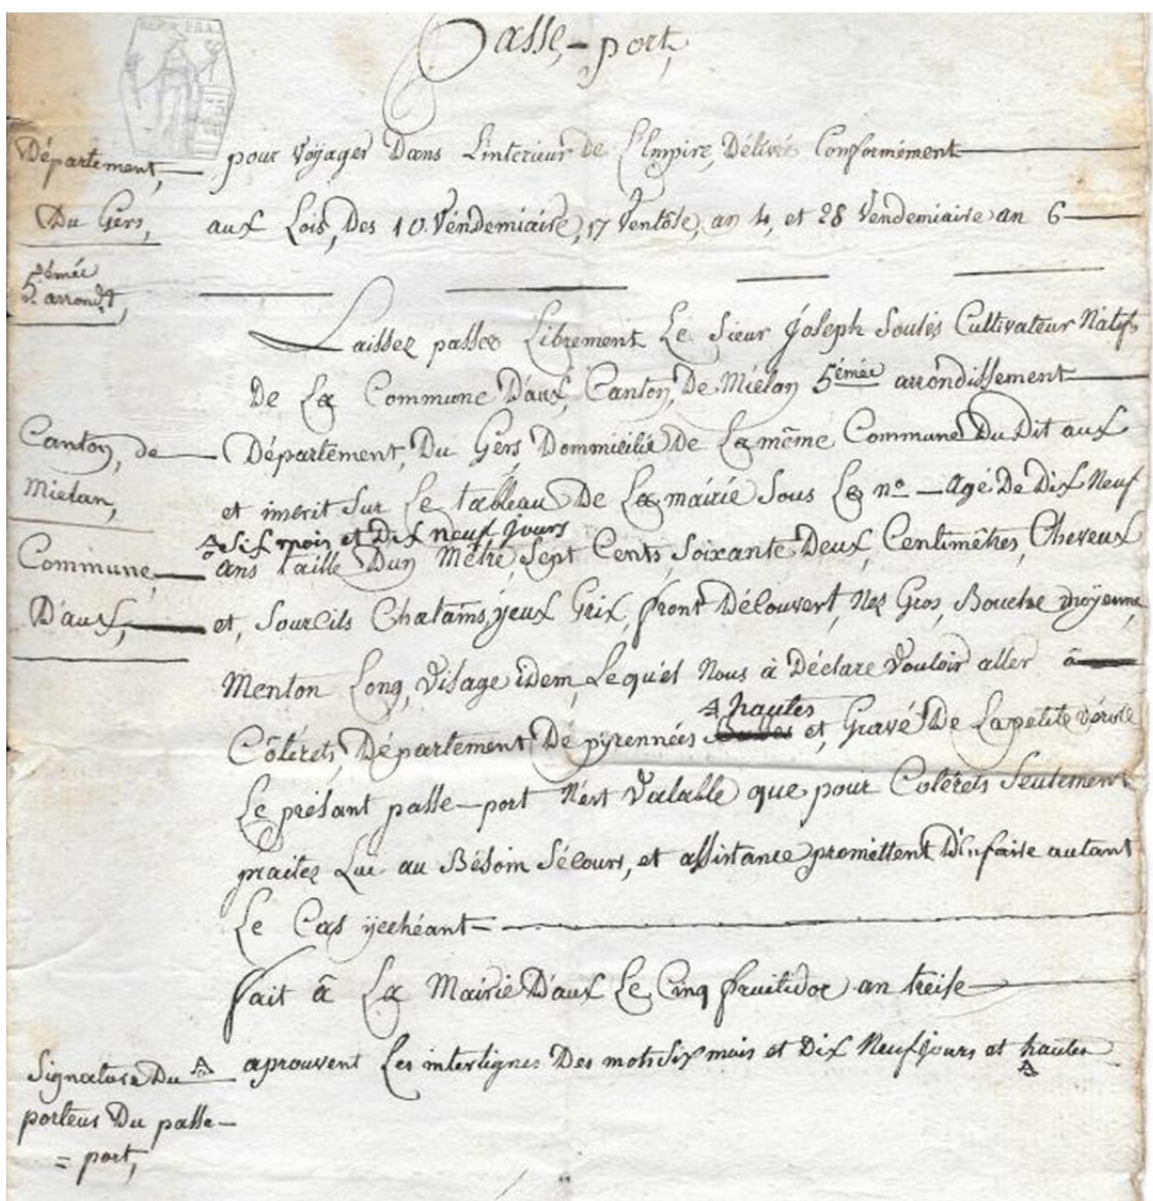 REP. FRA.
Passe-port,
Département,
Du Gers,
5.émée arrondt,
Canton, de
Mielan,
Commune,
D'aux,
pour Voyager Dans L'interieur de L'Empire, Délivré Conformément
aux Lois, Des 10. Vendémiaire, 17 Ventôse, an 4, et 28 Vendemiaire an 6
Laissez passer Librement Le Sieur Joseph Soulés Cultivateur Natif
De La Commune D'aux, Canton, De Miélan 5émée arrondissement
Département, Du Gers, Dommicilié De La même Commune Du Dit aux
et inscrit Sur Le tableau De La mairie Sous Le no — agé De Dix Neuf
Six mois et Dix neuf Jours
ans Taille D'un Mètre, Sept Cents, Soixante Deux, Centimètres, Cheveux
et, Sourcils Chatains, yeux Grix, front Découvert, Nez Gros, Bouche moÿenne,
Menton Long, Visage idem, Lequél Nous à Déclare Vouloir aller à
hautes
Côterets, Département, De pyrennées et, Gravé De La petite vérole
Le présant passe-port N'est Valable que pour Coterets Seulement
praitez Lui au Bésoin Sécours, et assistance promettent D'en faire autant
Le Cas ÿechéant
fait à La Mairie D'aux Le Cinq fruitidor an treise
aprouvent Les interlignes Des mots Six mois et Dix Neuf jours et hautes
Signature Du
porteur Du passe-
= port,